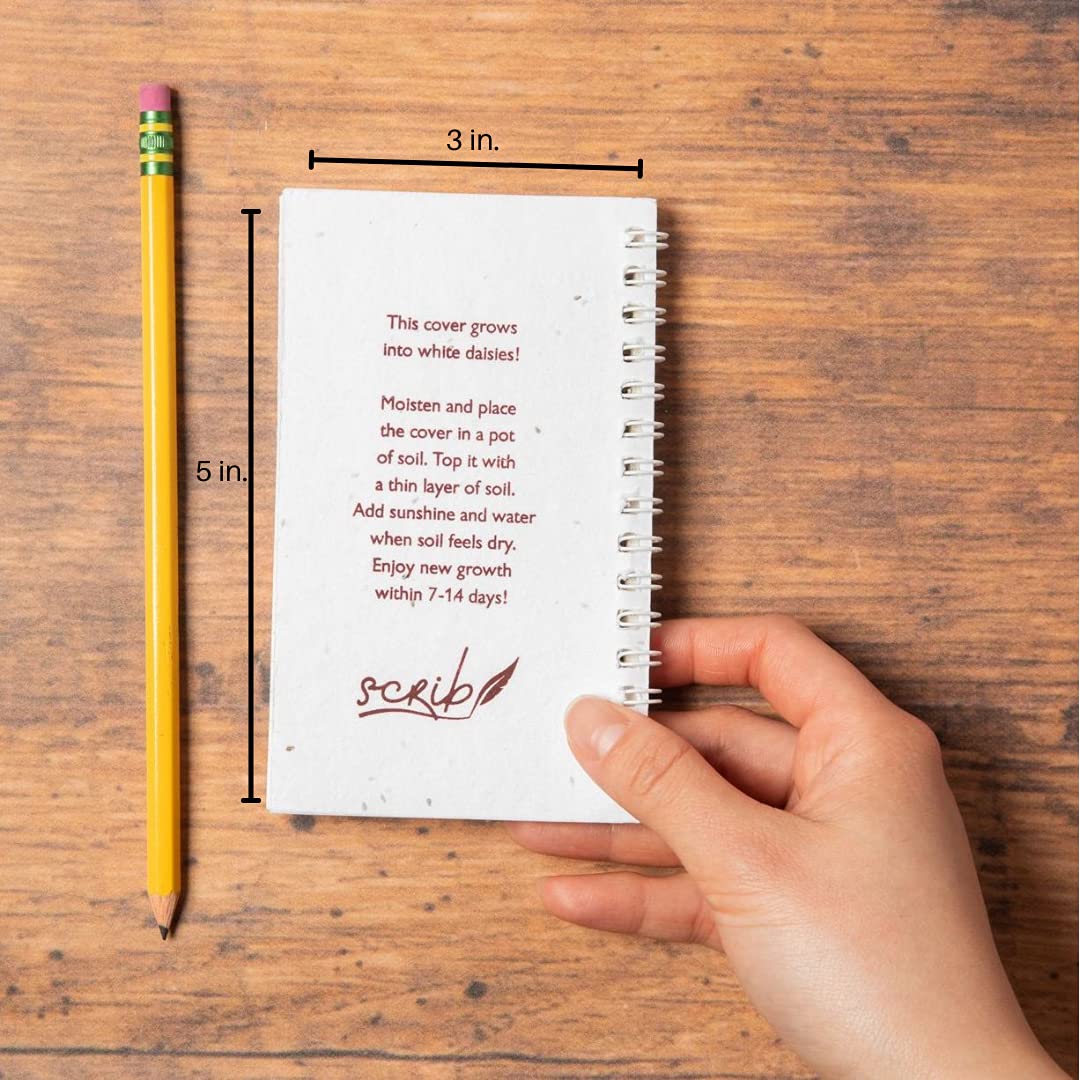 3 in.
5 in.
This cover grows
into white daisies!
Moisten and place
the cover in a pot
of soil. Top it with
a thin layer of soil.
Add sunshine and water
when soil feels dry.
Enjoy new growth
within 7-14 days!
scrib